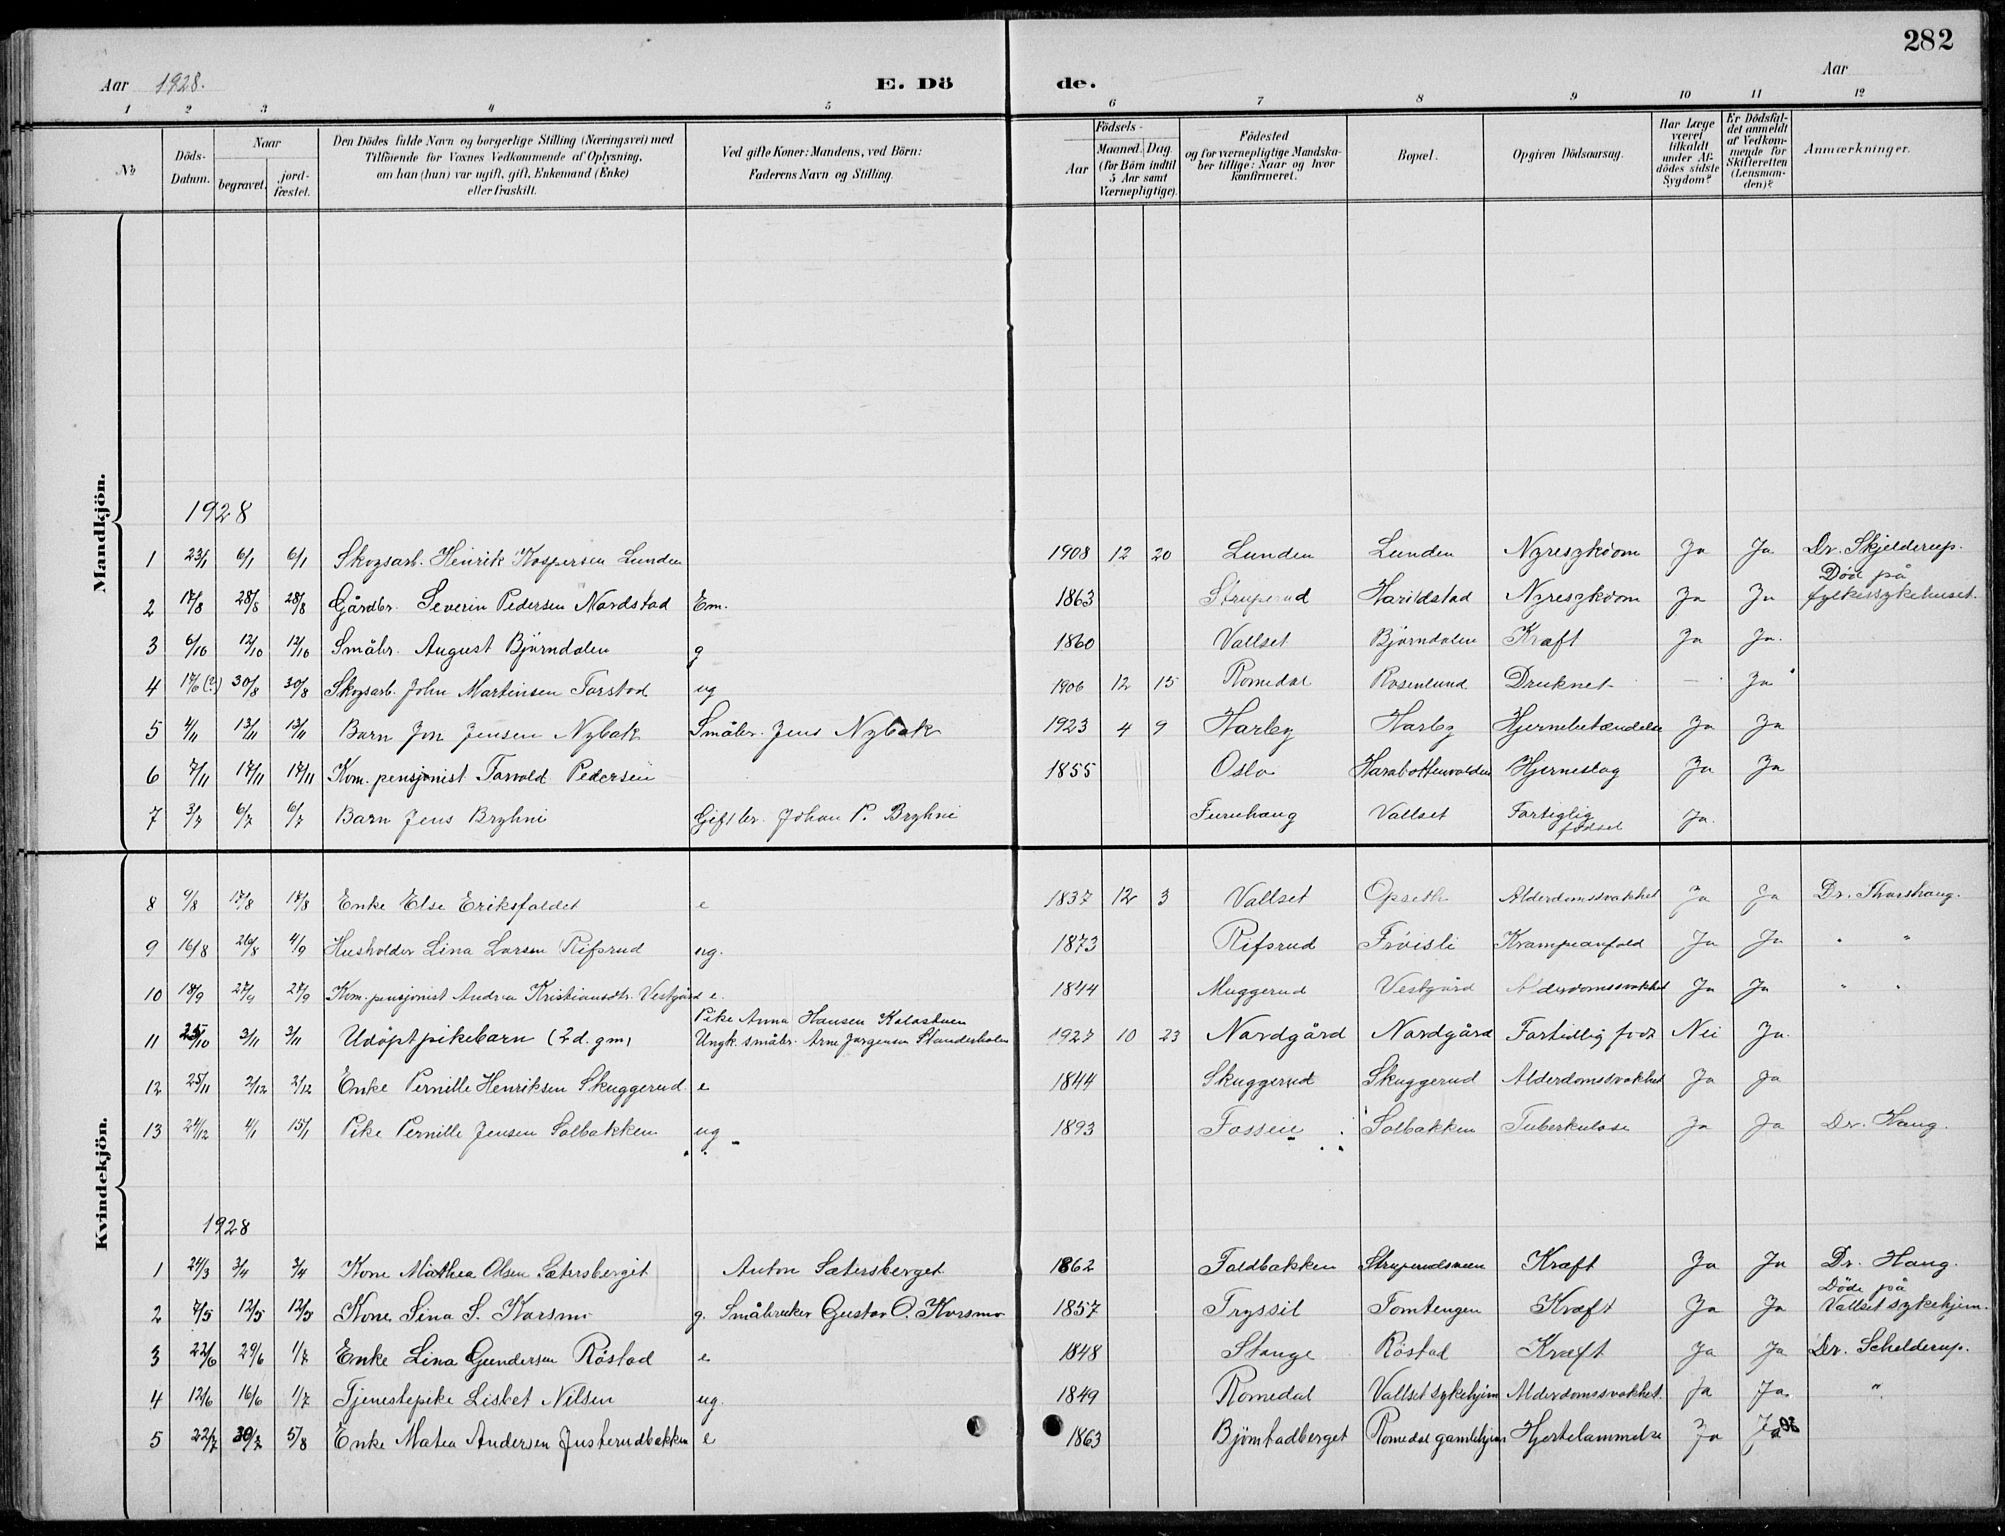 282
Aar 1928. E. Dö de. Aar
1 2 3 4 5 6 7 8 9 10 11 12
№
Döds-Datum.
Naar
begravet.
jord-fæstet.
Den Dödes fulde Navn og borgerlige Stilling (Næringsvei) med
Tilföiende for Voxnes Vedkommende af Oplysning,
om han (hun) var ugift, gift, Enkemand (Enke)
eller fraskilt.
Ved gifte Koner: Mandens, ved Börn:
Faderens Navn og Stilling.
Födsels-
Aar
Maaned. Dag.
(for Börn indtil
5 Aar samt
Værnepligtige)
Födested
og for værnepligtige Mandska-
ber tillige: Naar og hvor
konfirmeret.
Bopæl.
Opgiven Dödsaarsag.
Har Læge
været
tilkaldt
under Af-
dödes sidste
Sygdom?
Er Dödsfal-
det anmeldt
af Vedkom-
mende for
Skifteretten
(Lensman-
den)?
Anmærkninger.
Mandkjön.
1928
1 23/1 6/1 6/1 Skogsarb. Henrik Kaspersen Lunden 1908 12 20 Lunden Lunden Nyresykdom Ja Ja Dr. Skjelderup.
2 17/8 28/8 28/8 Gårdbr. Severin Pedersen Nordstad Em. 1863 Struperud Harildstad Nyresykdom Ja Ja Död på fylkessykehuset.
3 6/10 12/10 12/10 Småbr. August Björndalen g 1860 Vallset Björndalen Kræft Ja Ja.
4 17/6 (?) 30/8 30/8 Skogsarb. John Martinsen Torstad ug 1906 12 15 Romedal Rosenlund Druknet - Ja
5 4/11 13/11 13/11 Barn Jon Jensen Nybak Småbr. Jens Nybak 1923 4 9 Harby Harby Hjernebetændelse Ja Ja
6 7/11 17/11 17/11 Kom. pensjonist Torvald Pedersen 1855 Oslo Harabottenvolden Hjerneslag Ja Ja
7 3/7 6/7 6/7 Barn Jens Bryhni Johan P. Bryhni Furuhaug Vallset Fortidlig födsel Ja.
8 9/8 17/8 17/8 Enke Else Eriksfaldet e 1837 12 3 Vallset Opseth Alderdomssvakhet Ja Ja Dr. Thorshaug.
9 16/8 26/8 4/9 Husholder Lina Larsen Rifsrud ug. 1873 Rifsrud Fröisli Krampeanfald Ja Ja " "
10 18/9 27/9 27/9 Kom. pensjonist Andrea Kristiansdtr. Vestgård e. 1844 Muggerud Vestgård Alderdomssvakhet Ja Ja " "
11 25/10 3/11 3/11 Udöpt pikebarn (2 d. gm) Pike Anna Hansen Kalastuen
Ungk. småbr. Arne Jørgensen Standerholen 1927 10 23 Nordgård Nordgård Fortidlig født Nei Ja.
12 25/11 2/12 2/12 Enke Pernille Henriksen Skuggerud e 1844 Skuggerud Skuggerud Alderdomssvakhet Ja Ja
13 24/12 4/1 15/1 Pike Pernille Jensen Solbakken ug 1893 Fosseie Solbakken Tuberkulose Ja Ja Dr. Haug.
Kvindekjön.
1928
1 24/3 3/4 3/4 Kone Mathea Olsen Sætersberget Anton Sætersberget 1862 Foldbakken Struperudsveen Kræft Ja Ja Dr. Haug.
2 7/5 12/5 12/5 Kone Lina S. Korsmo g. Småbruker Gustav O. Korsmo 1857 Tryssil Tomtengen Kræft Ja Ja Döde på Vallset sykehjem.
3 22/6 29/6 1/7 Enke Lina Gundersen Röstad e 1848 Stange Röstad Kræft Ja Ja Dr. Schelderup.
4 12/6 16/6 1/7 Tjenestepike Lisbet Nilsen ug. 1849 Romedal Vallset sykehjem Alderdomssvakhet. Ja Ja. "
5 22/7 30/7 5/8 Enke Matea Andersen Justerudbakken e 1863 Björnstadberget Romedal gamlehjem Hjertelammelse Ja Ja